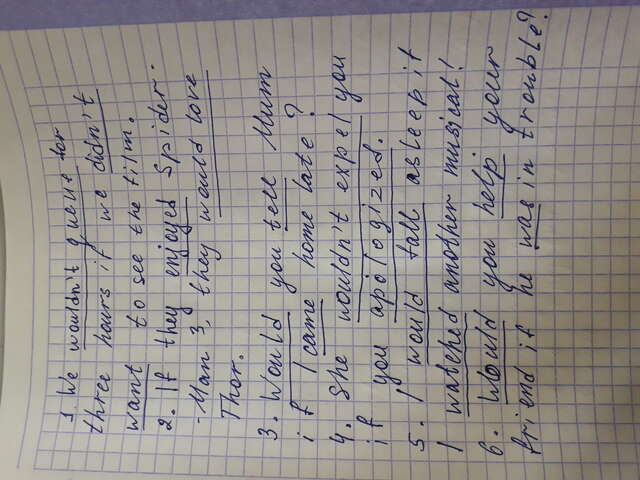 1. We wouldn't queue for
three hours if we didn't
want to see the film.
2. If they enjoyed Spider-
-Man 3, they would love
Thor.
3. Would you tell Mum
if I came home late?
4. She wouldn't expel you
if you apologized.
5. I would fall asleep if
I watched another musical!
6. Would you help your
friend if he was in trouble?